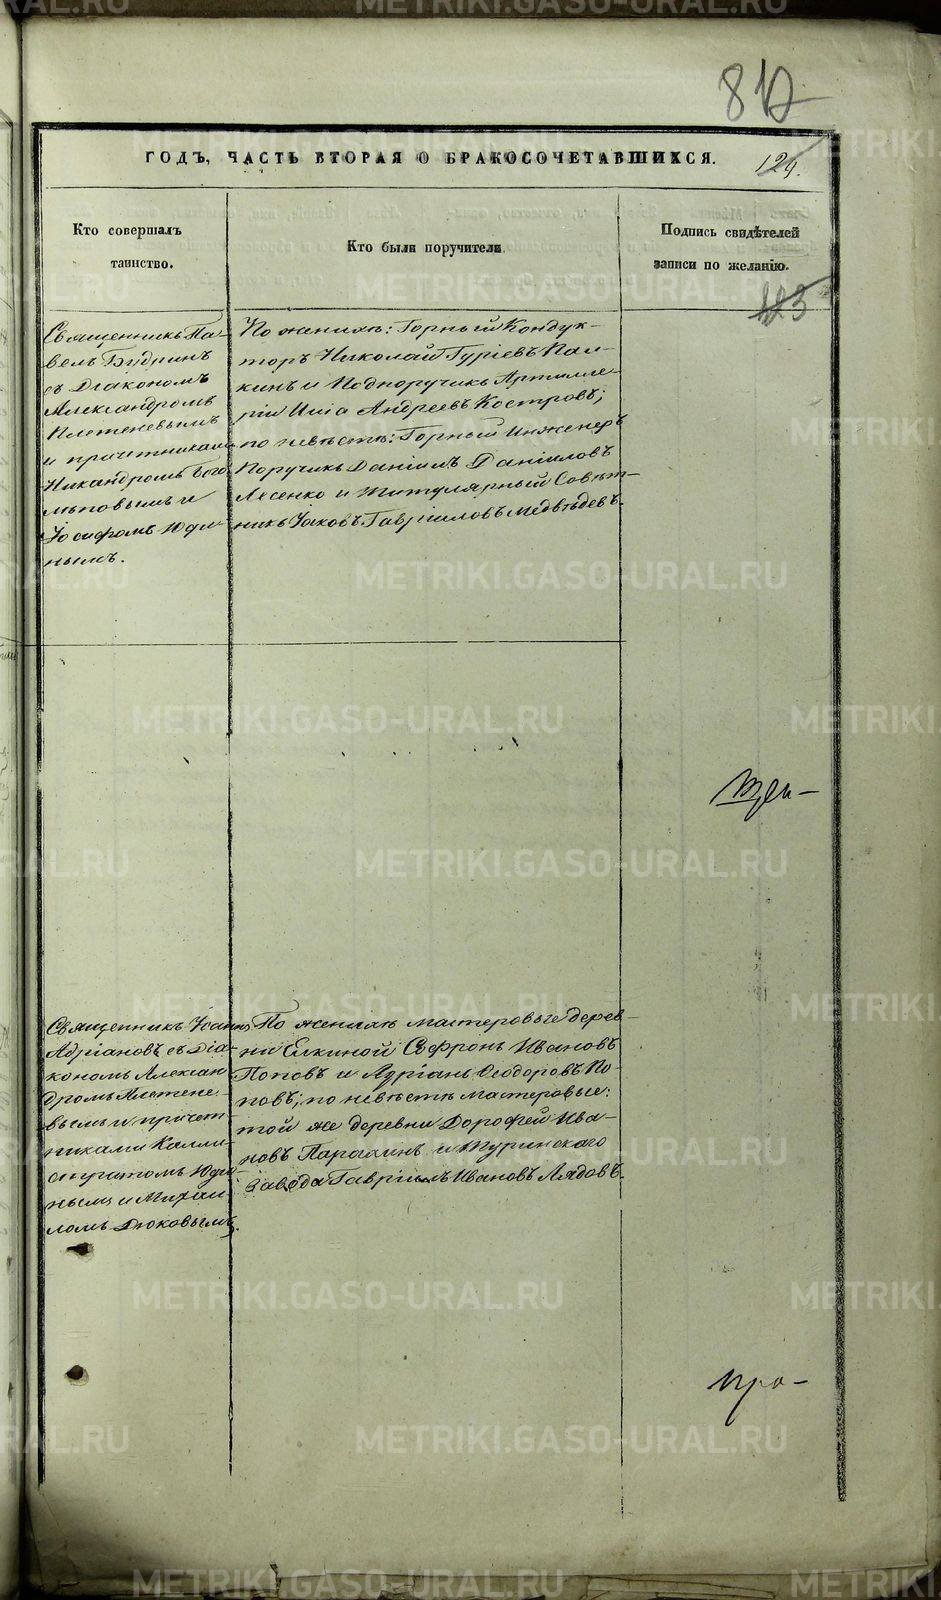 812
ГОДЪ, ЧАСТЬ ВТОРАЯ О БРАКОСОЧЕТАВШИХСЯ.
129.
Кто совершалъ
таинство.
Кто были поручители.
Подпись свидѣтелей
записи по желанію.
123
Священникъ Па-
велъ Бидринъ
съ Діакономъ
Александромъ
Плетеневымъ
и причетниками
Никандромъ Бого-
мъповымъ и
Іосифомъ Юди-
нымъ.
По женихѣ: Горный Кондук-
торъ Николай Гуріевъ Пал-
кинъ и Подпоручикъ Артилле-
ріи Илія Андреевъ Костровъ;
по невѣстѣ: Горный Инженеръ
Поручикъ Даніилъ Даніиловъ
Лесенко и Титулярный Совѣт-
никъ Іаковъ Гавріиловъ Медвѣдевъ.
Щеп-
Священникъ Іоаннъ
Адріановъ съ Діа-
кономъ Алексан-
дромъ Плетене-
вымъ и причет-
никами Калли-
стратомъ Юди-
нымъ и Михаи-
ломъ Дюковымъ.
По женихѣ мастеровые дерев-
ни Елкиной Софронъ Ивановъ
Поповъ и Адріанъ Ѳеодоровъ По-
повъ; по невѣстѣ мастеровые:
той же деревни Дорофей Ива-
новъ и Туринскаго
завода Гавріилъ Ивановъ Лядовъ.
пра-
METRIKI.GASO-URAL.RU